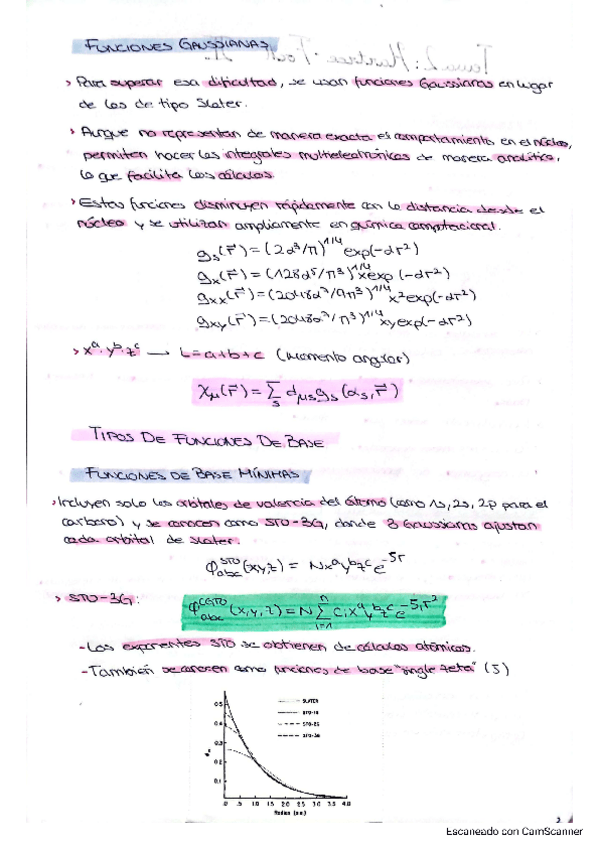 FUNCIONES GAUSSIANAS
> Para superar esa dificultad, se usan funciones Gaussianas en lugar
de las de tipo Slater.
> Aunque no representan de manera exacta el comportamiento en el núcleo,
permiten hacer las integrales multielectrónicas de manera analítica,
lo que facilita los cálculos.
> Estas funciones disminuyen rápidamente con la distancia desde el
núcleo y se utilizan ampliamente en química computacional.
gs(r⃗) = (2α³/π)^1/4 exp(-αr²)
gx(r⃗) = (128α⁵/π³)^1/4 x exp(-αr²)
gxx(r⃗) = (2048α⁷/9π³)^1/4 x² exp(-αr²)
gxy(r⃗) = (2048α⁷/π³)^1/4 xy exp(-αr²)
> xᵃ·yᵇ·zᶜ → L = a+b+c (Momento angular)
χμ(r⃗) = Σs dμs gs(αs, r⃗)
TIPOS DE FUNCIONES DE BASE
FUNCIONES DE BASE MÍNIMAS
> Incluyen solo los orbitales de valencia del átomo (como 1s, 2s, 2p para el
carbono) y se conocen como STO-3G, donde 3 Gaussianas ajustan
cada orbital de Slater.
φabc^STO (x,y,z) = N xᵃ yᵇ zᶜ e^-ζr
> STO-3G: φabc^CGTO (x,y,z) = N Σ(i=1, n) ci xᵃ yᵇ zᶜ e^-ζi r²
- Los exponentes STO se obtienen de cálculos atómicos.
- También se conocen como funciones de base "single zeta" (ζ)
SLATER
STO-1G
STO-2G
STO-3G
0.5
0.4
0.3
0.2
0.1
.0 .5 1.0 1.5 2.0 2.5 3.0 3.5 4.0
Radius (a.u.)
2
Escaneado con CamScanner